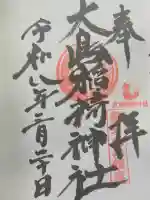 奉拝
大縣稲荷神社
令和八年二月二十日